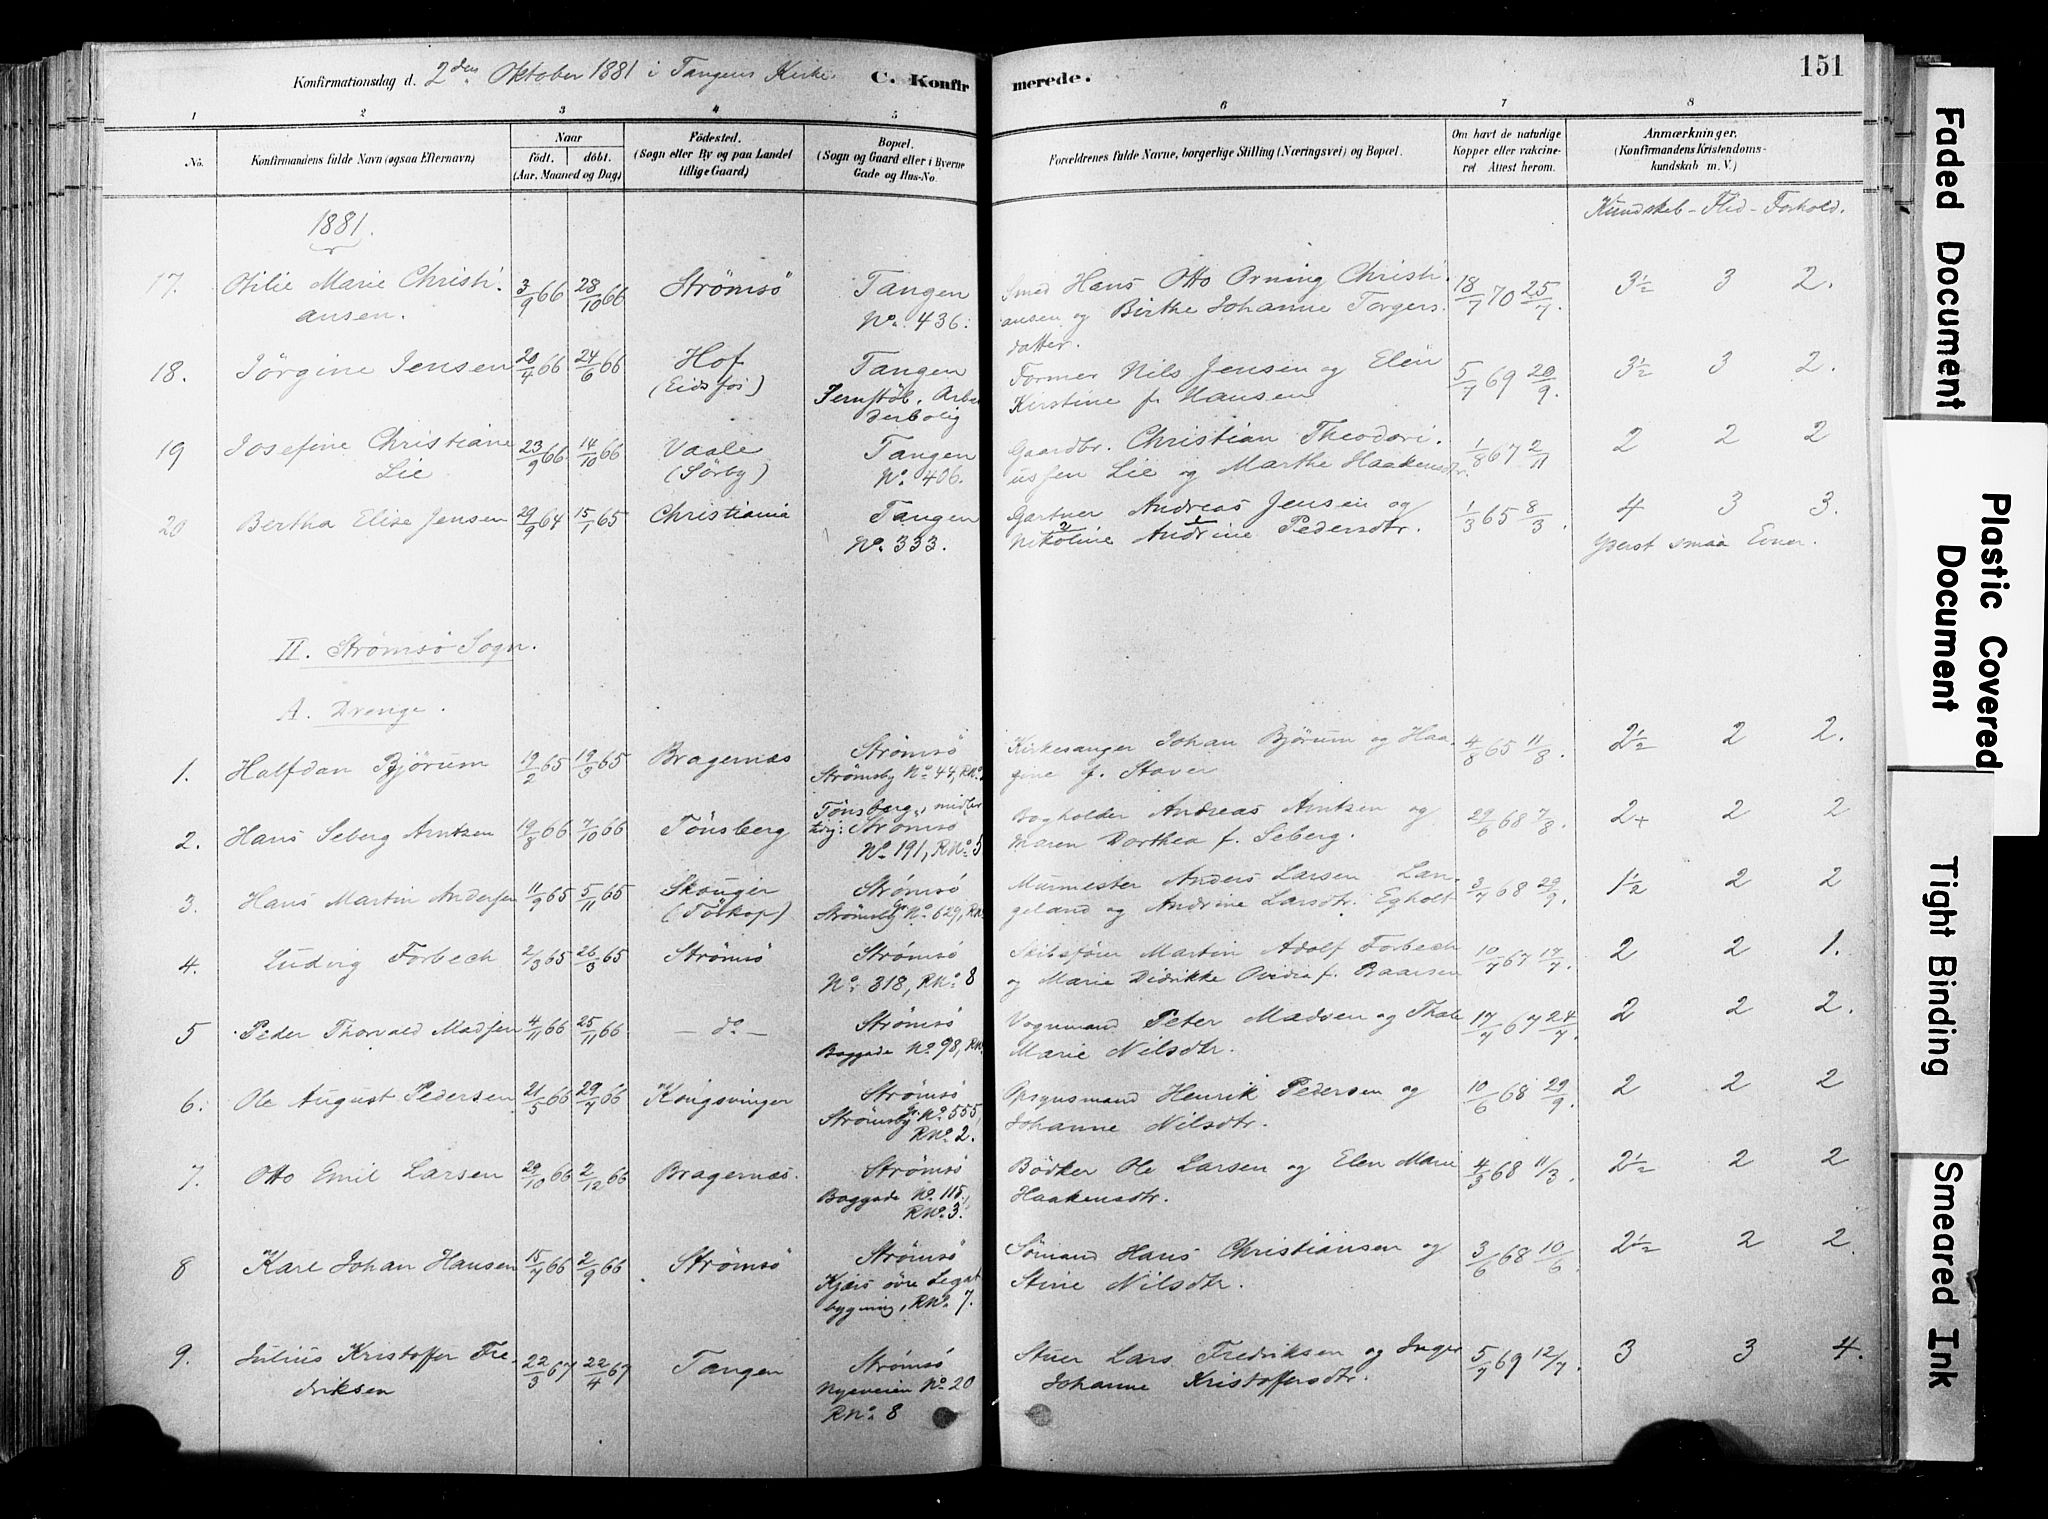 151
Konfirmationsdag d. 2den Oktober 1881 i Tangens Kirke. C. Konfirmerede.
1 2 3 4 5 6 7 8
No. Konfirmandens fulde Navn (ogsaa Efternavn) Naar födt. döbt. (Aar, Maaned og Dag) Födested. (Sogn eller By og paa Landet tillige Gaard) Bopæl. (Sogn og Gaard eller i Byerne Gade og Hus-No. Forældrenes fulde Navne, borgerlige Stilling (Næringsvei) og Bopæl. Om havt de naturlige Kopper eller vakcineret Attest herom. Anmærkninger. (Konfirmandens Kristendomskundskab m. V.)
Kundskab - Flid - Forhold.
1881.
17. Otilie Marie Christiansen. 3/9 66 28/10 66 Strömsö Tangen No. 436. Smed Hans Otto Orning Christiansen og Birthe Johanne Torgersdatter. 18/7 70 25/7 3½ 3 2.
18. Jörgine Jensen 20/4 66 24/6 66 Hof (Eidsfos) Tangen Jernstöb. Arbeiderbolig Former Nils Jensen og Elen Kirstine f. Hansen 5/7 69 20/9. 3½ 3 2.
19 Josefine Christiane Lie 23/9 66 14/10 66 Vaale (Sörby) Tangen No. 406. Gaardbr. Christian Theodoriussen Lie og Marthe Haakensdtr. 1/8 67 2/11 2 2 2
20 Bertha Elise Jensen 29/9 64 15/1 65 Christiania Tangen No. 333. Gartner Andreas Jensen og Nikoline Andrine Pedersdtr. 1/3 65 8/3 4 3 3.
Yderst smaa Evner.
II. Strömsö Sogn.
A. Drenge.
1. Halfdan Björum 19/2 65 19/3 65 Bragernæs Strömsö Strömsby No. 44, RNo. Kirkesanger Johan Björum og Haagine f. Staver 4/8 65 11/8 2½ 2 2.
2. Hans Seberg Arntzen 19/8 66 7/10 66 Tönsberg Tönsberg, midlertidig: Strömsö No. 191, RNo. 5 Bogholder Andreas Arntzen og Maren Dorthea f. Seberg. 29/6 68 7/8. 2+ 2 2
3. Hans Martin Andersen 11/9 65 5/11 65 Skouger (Töskop) Strömsö Strömsby Gr. No. 629, RNo. Murmester Anders Larsen Langeland og Andrine Larsdtr. Egholt 3/7 68 29/9. 1½ 2 2
4. Ludvig Forbech 2/3 65 26/3 65 Strömsö Strömsö No. 318, RNo. 8 Skibsförer Martin Adolf Forbech og Marie Didrikke Ovidia f. Paarsen 10/7 67 17/7. 2 2 1.
5 Peder Thorvald Madsen 4/11 66 25/11 66 - do - Strömsö Baggade No. 98, RNo. Vognmand Peter Madsen og Thale Marie Nilsdtr. 17/7 67 24/7 2 2 2.
6. Ole August Pedersen 21/5 66 29/7 66 Kongsvinger Strömsö Strömsby Gr. No. 555, RNo. 2. Opsynsmand Henrik Pedersen og Johanne Nilsdtr. 10/6 68 29/9. 2 2 2
7. Otto Emil Larsen 29/10 66 2/12 66 Bragernæs. Strömsö Baggade No. 115, RNo. 3. Bödker Ole Larsen og Elen Marie Haakensdtr. 4/3 68 11/3. 2½ 2 2
8 Karl Johan Hansen 15/7 66 2/9 66 Strömsö Strömsö Kjærs övre Legatbygning, RNo. 7. Sömand Hans Christiansen og Stine Nilsdtr. 3/6 68 10/6 2½ 2 2.
9. Julius Kristoffer Fredriksen 22/3 67 22/4 67 Tangen Strömsö Nyeveien No. 20 RNo. 8 Stuer Lars Fredriksen og Inger Johanne Kristoffersdtr. 5/7 69 12/7 3 3 4.
Faded Document
Plastic Covered Document
Tight Binding
Smeared Ink